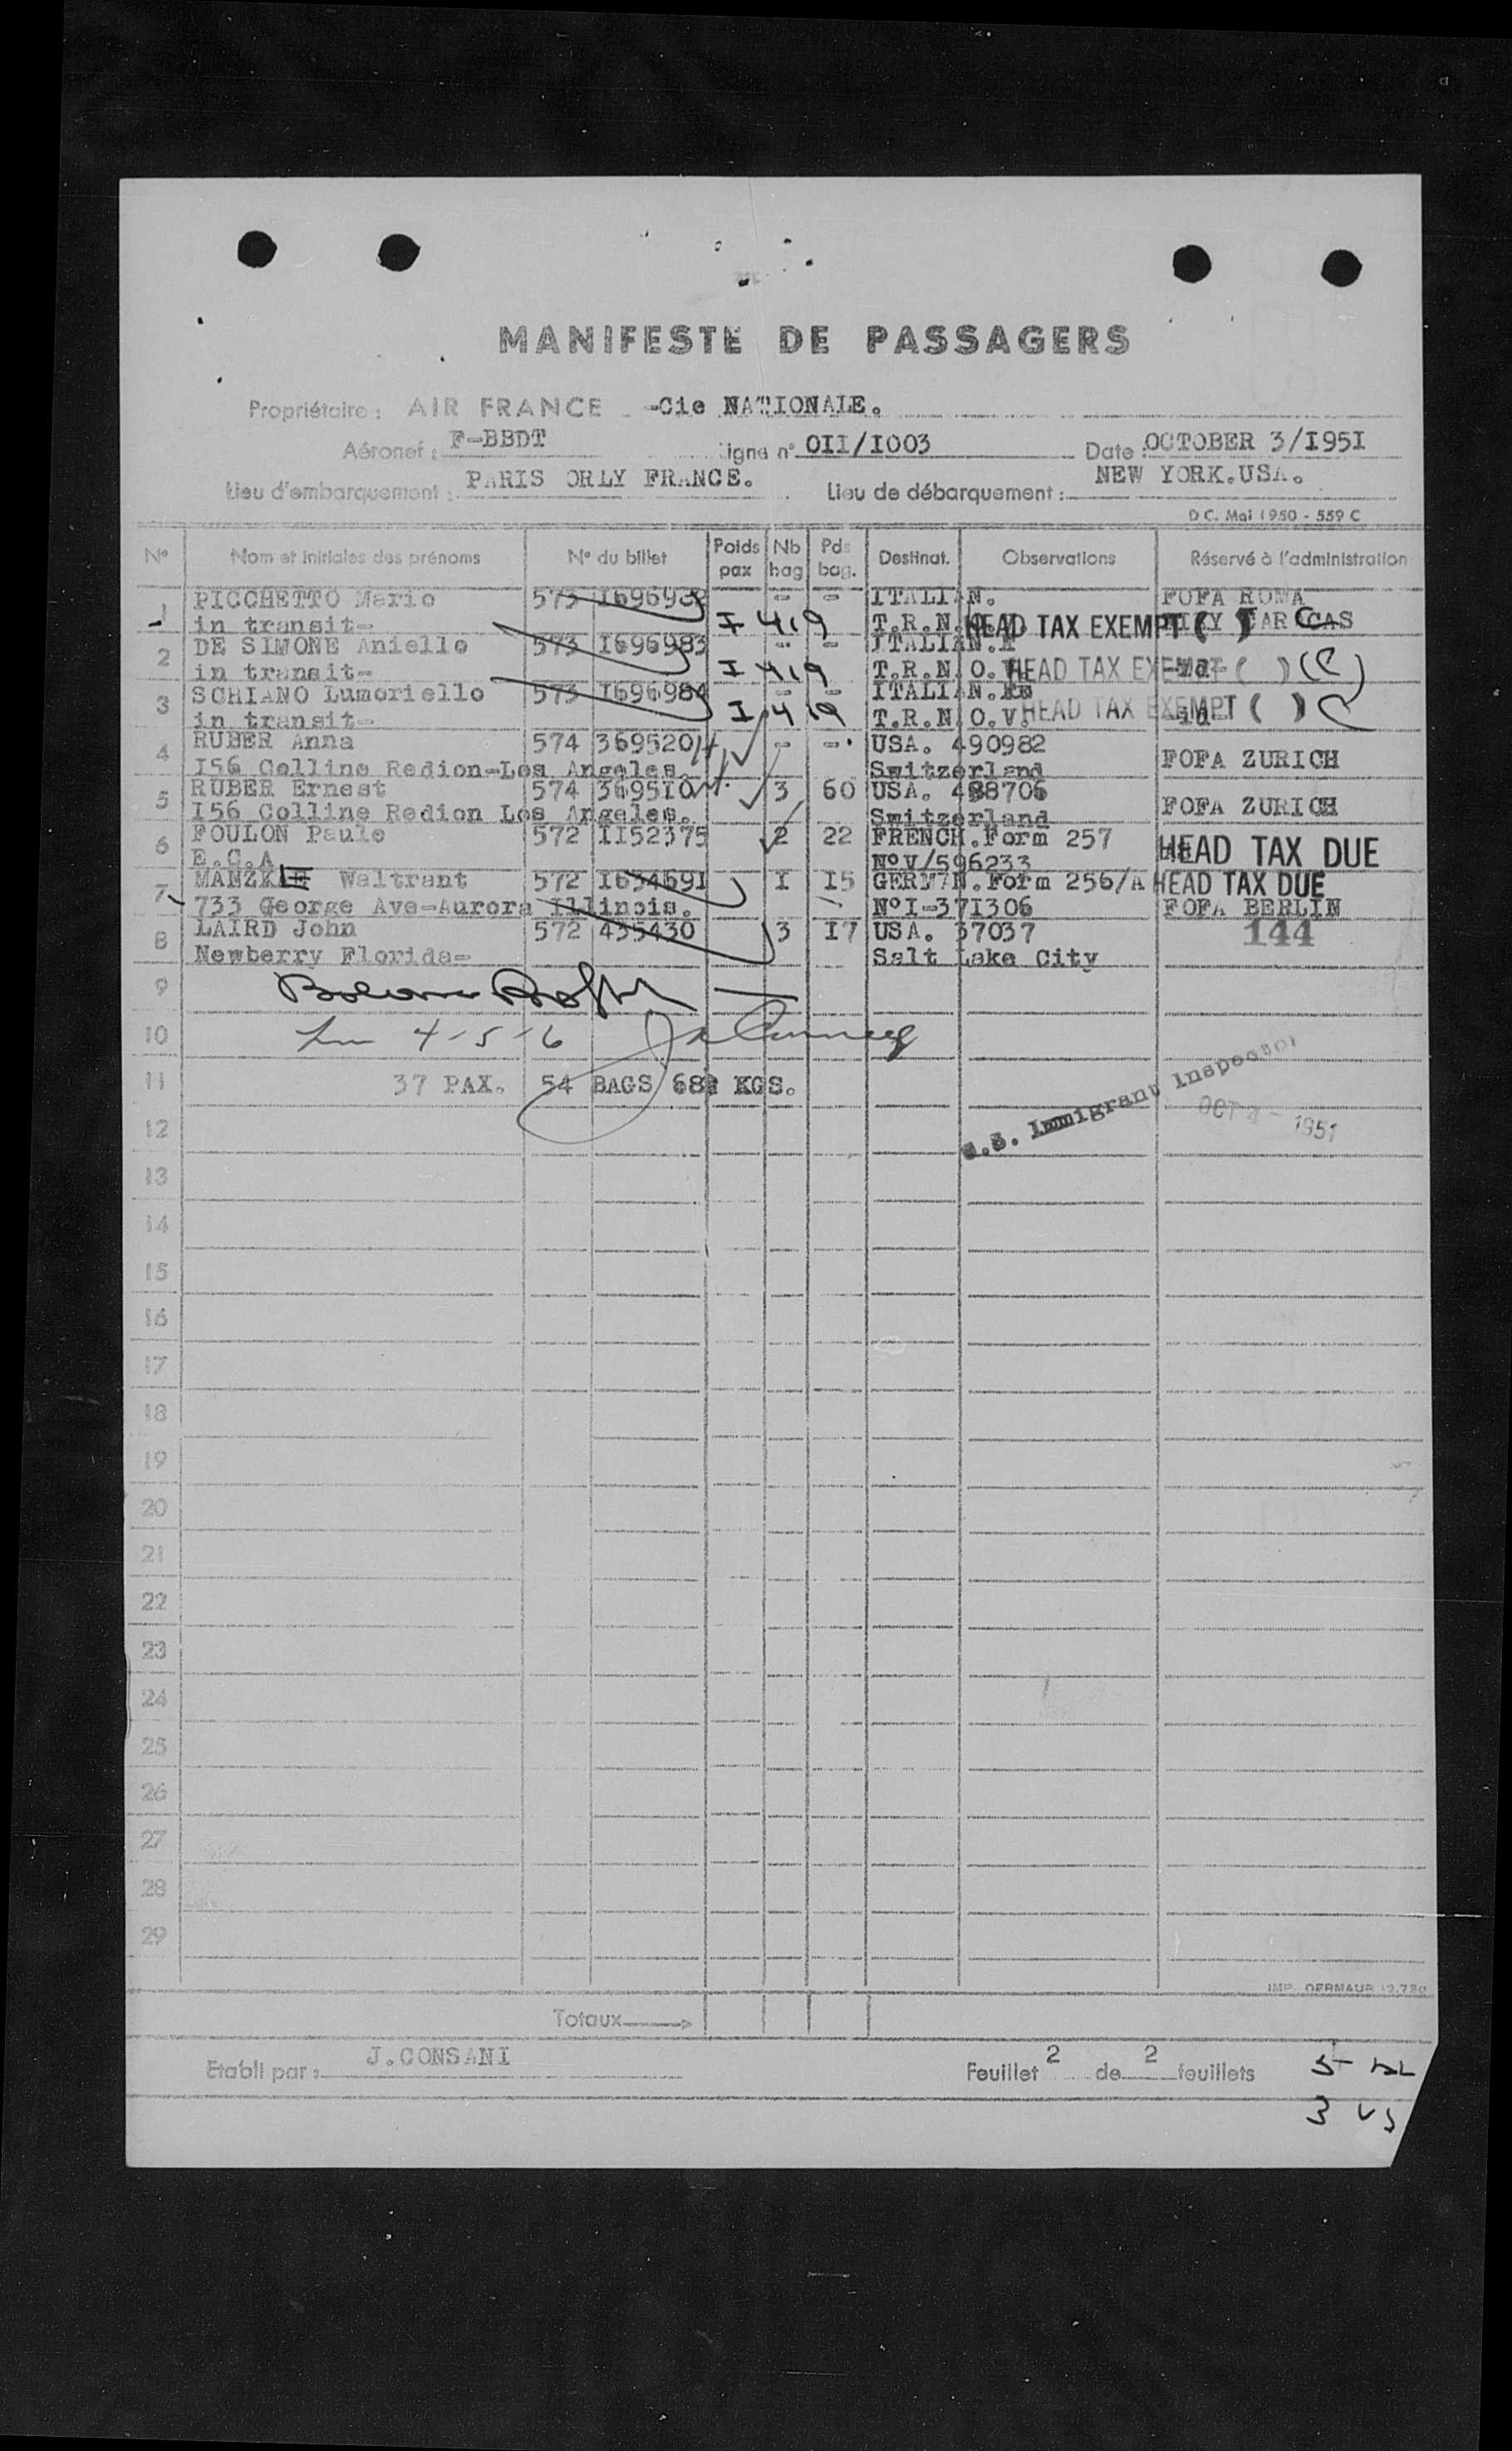 MANIFESTE DE PASSAGERS
Propriétaire : AIR FRANCE -Cie NATIONALE.
Aéronef : F-BBDT Ligne n° OII/I003 Date : OCTOBER 3/I95I
Lieu d'embarquement : PARIS ORLY FRANCE. Lieu de débarquement : NEW YORK.USA.
D C. Mai 1950 - 559 C
N° Nom et initiales des prénoms N° du billet Poids pax Nb bag Pds bag. Destinat. Observations Réservé à l'administration
1 PICCHETTO Mario 573 I69698 - - ITALIAN. FOFA ROMA
in transit- I 419 T.R.N.O.V. HEAD TAX EXEMPT ( )
2 DE SIMONE Aniello 573 I696983 - - ITALIAN.
in transit- I 419 T.R.N.O.V. HEAD TAX EXEMPT ( ) -id-
3 SCHIANO Lumoriello 573 I696984 - - ITALIAN.
in transit- I 419 T.R.N.O.V. HEAD TAX EXEMPT ( ) -id-
4 RUBER Anna 574 369520 - - USA. 490982 FOFA ZURICH
I56 Colline Redion-Los Angeles. Switzerland
5 RUBER Ernest 574 369510 3 60 USA. 488706 FOFA ZURICH
I56 Colline Redion Los Angeles. Switzerland
6 FOULON Paule 572 II52375 2 22 FRENCH.Form 257 HEAD TAX DUE
E.C.A N°V/596233
7 MANZKLE Waltrant 572 I654691 I I5 GERMAN.Form 256/A HEAD TAX DUE
733 George Ave-Aurora Illinois. N°I-37I306 FOFA BERLIN
8 LAIRD John 572 435430 3 I7 USA. 37037 144
Newberry Florida- Salt Lake City
9
10 4-5-6
11 37 PAX. 54 BAGS KGS.
U.S. Immigrant Inspector
OCT 4 - 1951
12
13
14
15
16
17
18
19
20
21
22
23
24
25
26
27
28
29
Totaux
Etabli par : J.CONSANI Feuillet 2 de 2 feuillets
3 US